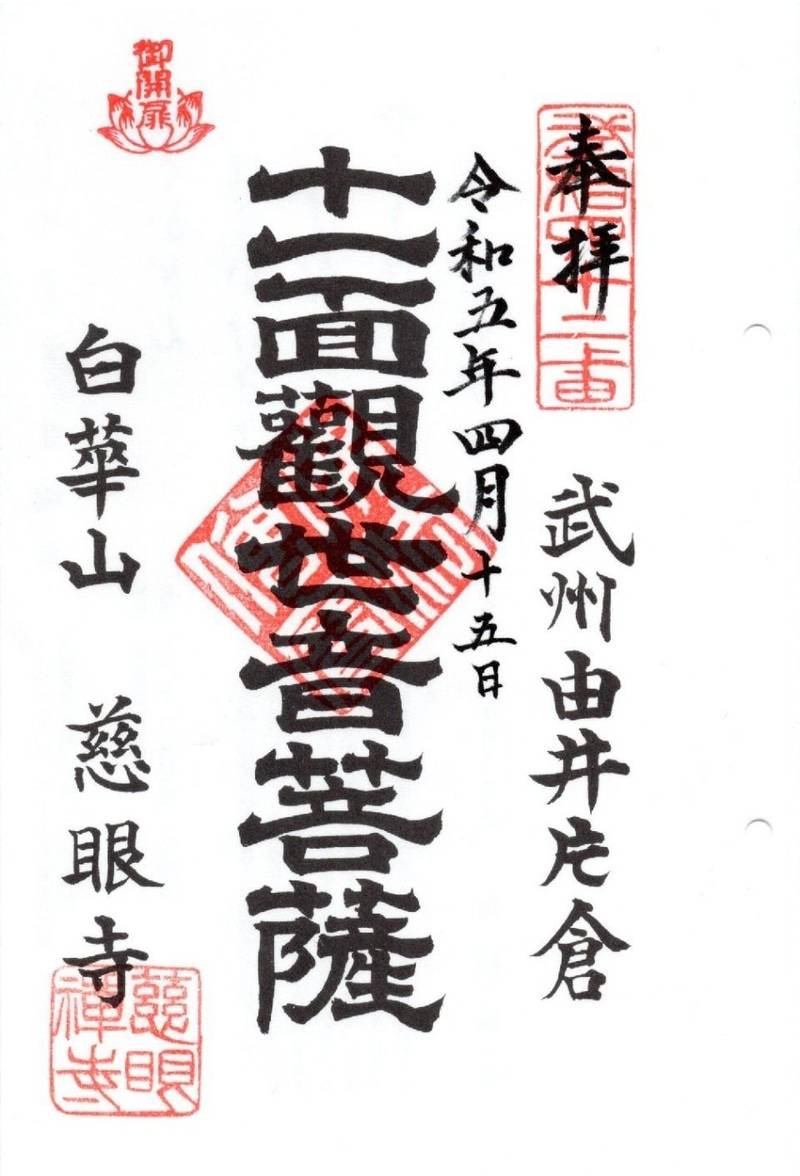 奉拝
武相四十二番
武州由井片倉
令和五年四月十五日
十一面觀世音菩薩
御開扉
白華山 慈眼寺
慈眼禅寺